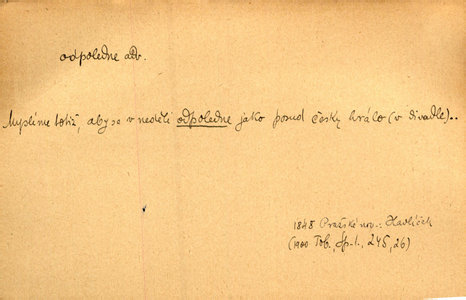 odpoledne adv.
Myslíme totiž, aby se v neděli odpoledne jako posud česky hrálo (v divadle)..
1848 Pražské nov.: Havlíček
(1900 Tob., Sp. I., 245, 26)